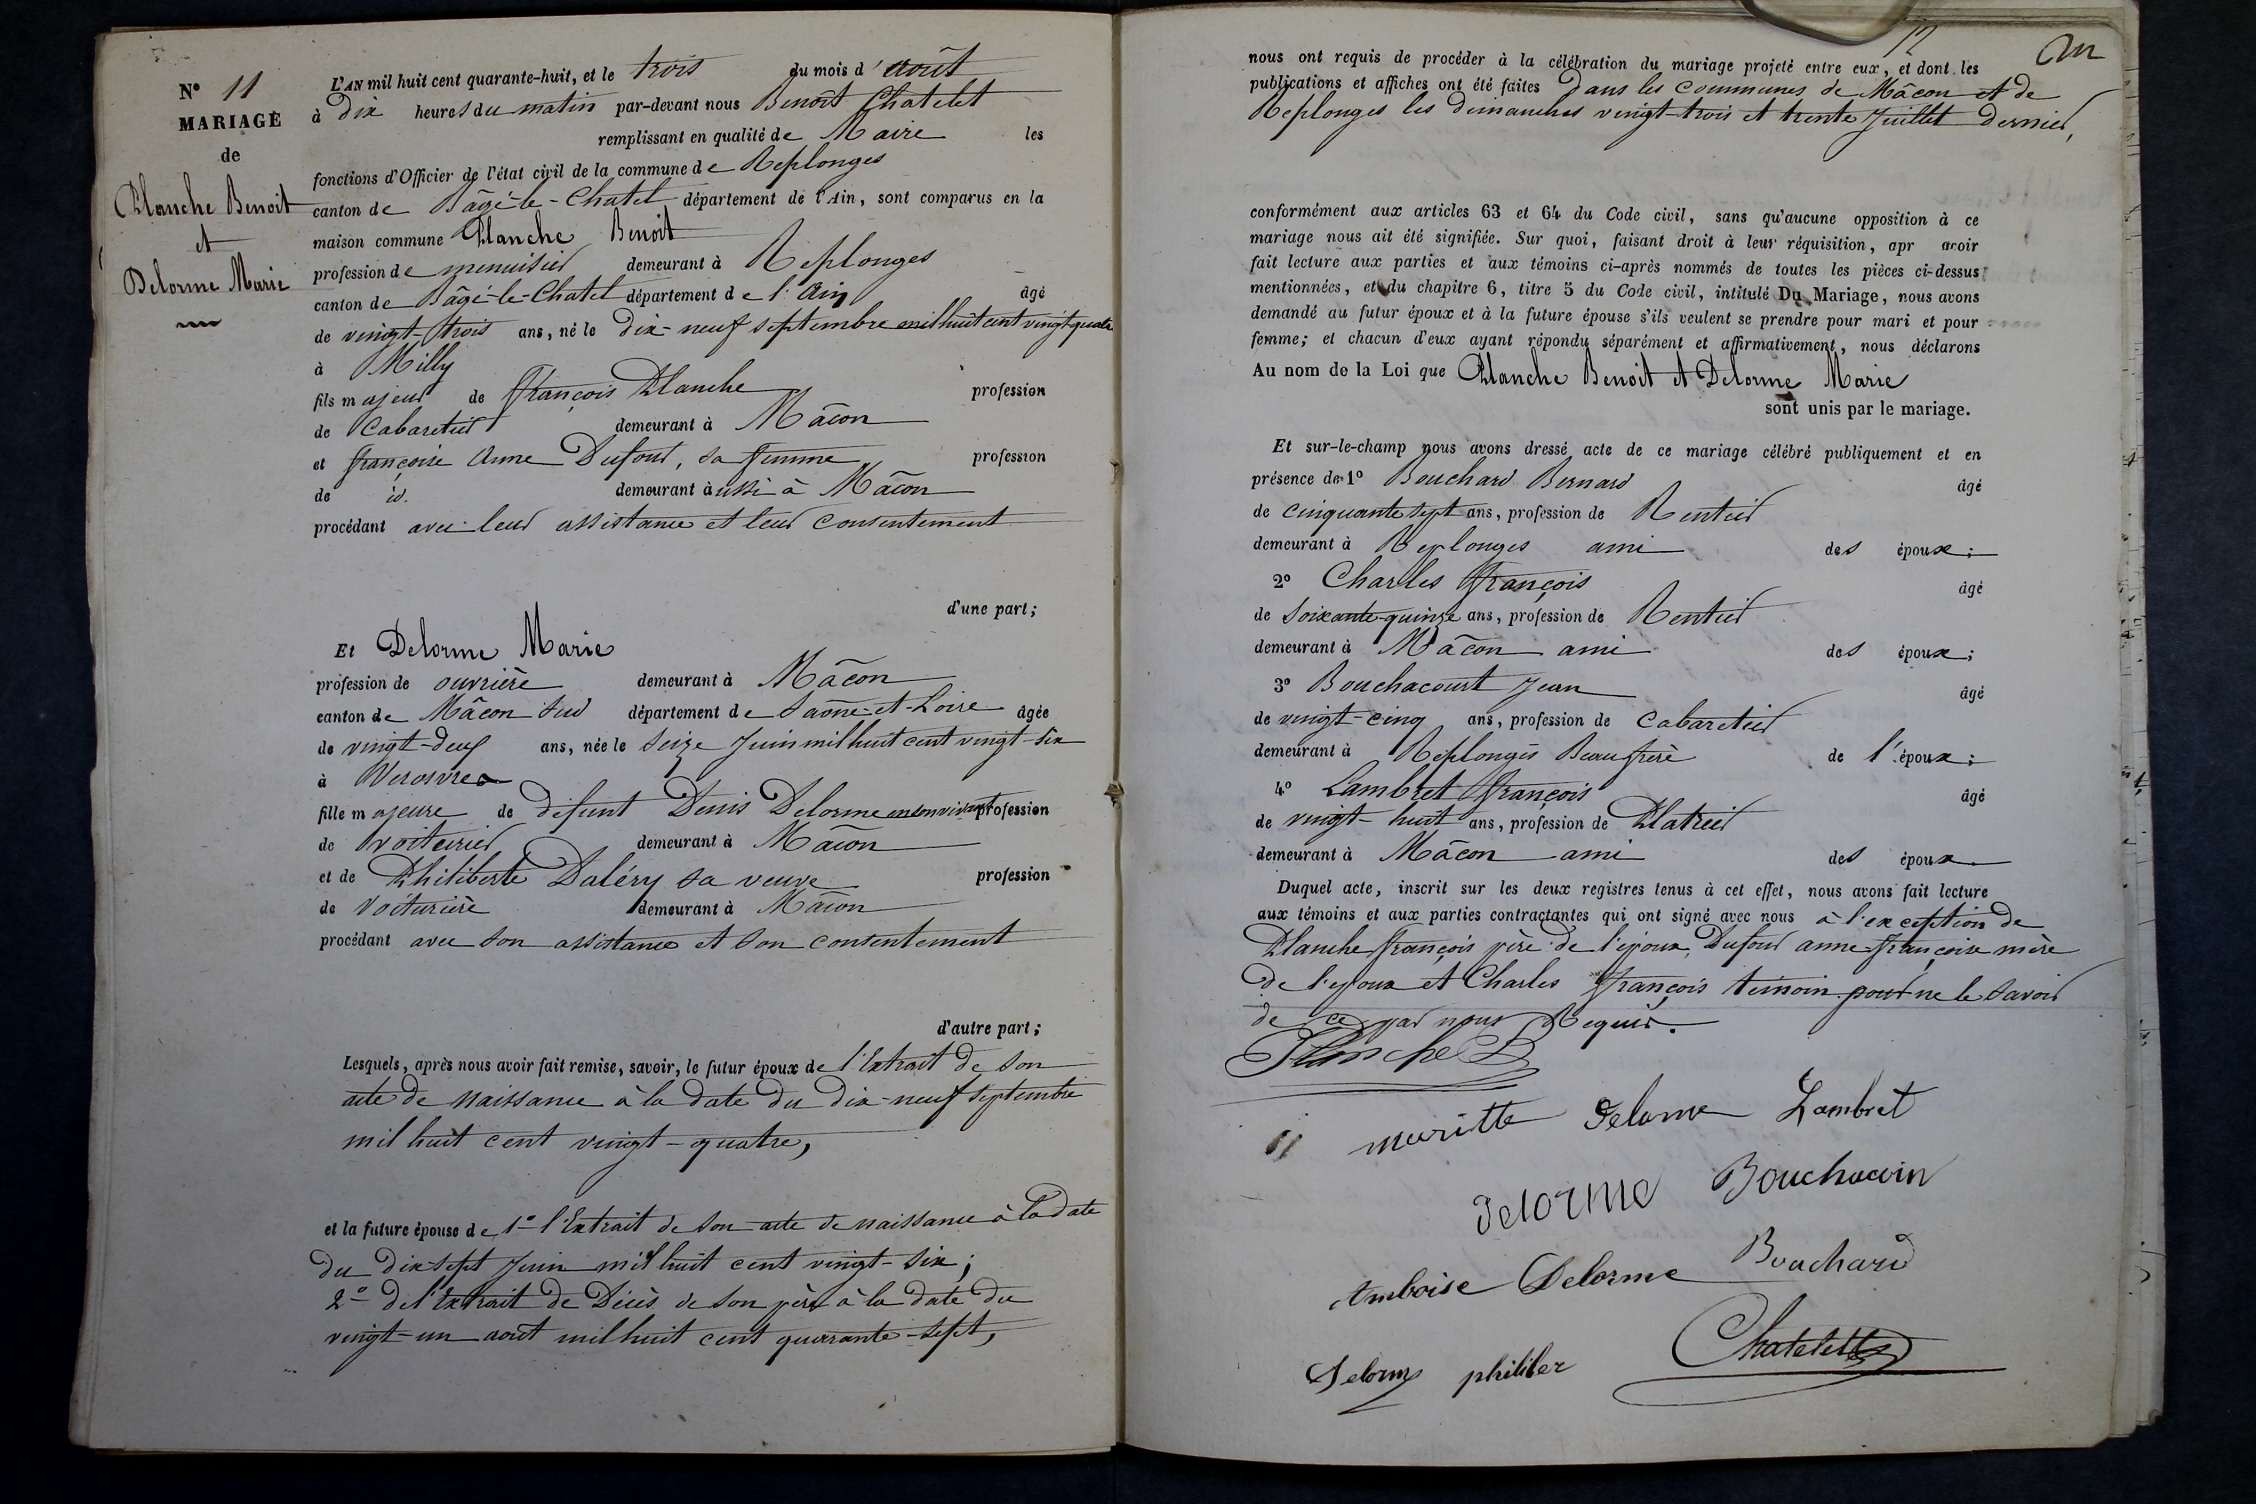 N° 11
MARIAGE
de
Planche Benoit
et
Delorme Marie
L'AN mil huit cent quarante-huit, et le trois du mois d'août
à Dix heures du matin par-devant nous Benoît Chatelet
remplissant en qualité de Maire les
fonctions d'Officier de l'état civil de la commune de Replonges
canton de Bâgé-le-Chatel département de l'Ain, sont comparus en la
maison commune Planche Benoit
profession de menuisier demeurant à Replonges
canton de Bâgé-le-Chatel département de l'Ain âgé
de vingt-trois ans, né le dix-neuf septembre mil huit cent vingt-quatre
à Milly
fils majeur de François Planche profession
de Cabaretier demeurant à Mâcon
et françoise Anne Dufour, sa femme profession
de id. demeurant aussi à Mâcon
procédant avec leur assistance et leur consentement
d'une part;
Et Delorme Marie
profession de ouvrière demeurant à Mâcon
canton de Mâcon Sud département de Saône-et-Loire âgée
de vingt-deux ans, née le seize Juin mil huit cent vingt-six
à Verosvres
fille majeure de défunt Denis Delorme en son vivant profession
de voiturier demeurant à Mâcon
et de Philiberte Daléry sa veuve profession
de Voiturière demeurant à Mâcon
procédant avec son assistance et son consentement
d'autre part;
Lesquels, après nous avoir fait remise, savoir, le futur époux de l'Extrait de son
acte de naissance à la date du dix-neuf septembre
mil huit cent vingt-quatre,
et la future épouse de 1° l'Extrait de son acte de naissance à la date
du dix-sept Juin mil huit cent vingt-six;
2° de l'Extrait de Décès de son père à la date du
vingt-un août mil huit cent quarante-sept,
12
nous ont requis de procéder à la célébration du mariage projeté entre eux, et dont les
publications et affiches ont été faites Dans les communes de Mâcon et de
Replonges les dimanches vingt-trois et trente Juillet dernier,
conformément aux articles 63 et 64 du Code civil, sans qu'aucune opposition à ce
mariage nous ait été signifiée. Sur quoi, faisant droit à leur réquisition, apr avoir
fait lecture aux parties et aux témoins ci-après nommés de toutes les pièces ci-dessus
mentionnées, et du chapitre 6, titre 5 du Code civil, intitulé Du Mariage, nous avons
demandé au futur époux et à la future épouse s'ils veulent se prendre pour mari et pour
femme; et chacun d'eux ayant répondu séparément et affirmativement, nous déclarons
Au nom de la Loi que Planche Benoit et Delorme Marie
sont unis par le mariage.
Et sur-le-champ nous avons dressé acte de ce mariage célébré publiquement et en
présence de 1° Bouchard Bernard âgé
de cinquante sept ans, profession de Rentier
demeurant à Replonges ami des époux;
2° Charles François âgé
de soixante-quinze ans, profession de Rentier
demeurant à Mâcon ami des époux;
3° Bouchacourt Jean âgé
de vingt-cinq ans, profession de Cabaretier
demeurant à Replonges Beau frère de l'époux;
4° Lambret François âgé
de vingt-huit ans, profession de Platrier
demeurant à Mâcon ami des époux
Duquel acte, inscrit sur les deux registres tenus à cet effet, nous avons fait lecture
aux témoins et aux parties contractantes qui ont signé avec nous à l'exception de
Planche François père de l'époux, Dufour anne-françoise mère
de l'époux et Charles françois témoin pour ne le savoir
de ce par nous Requis.
Planche B
mariette Delorme Lambret
Delorme Bouchacoin
Amboise Delorme Bouchard
Delorm philiber Chatelet